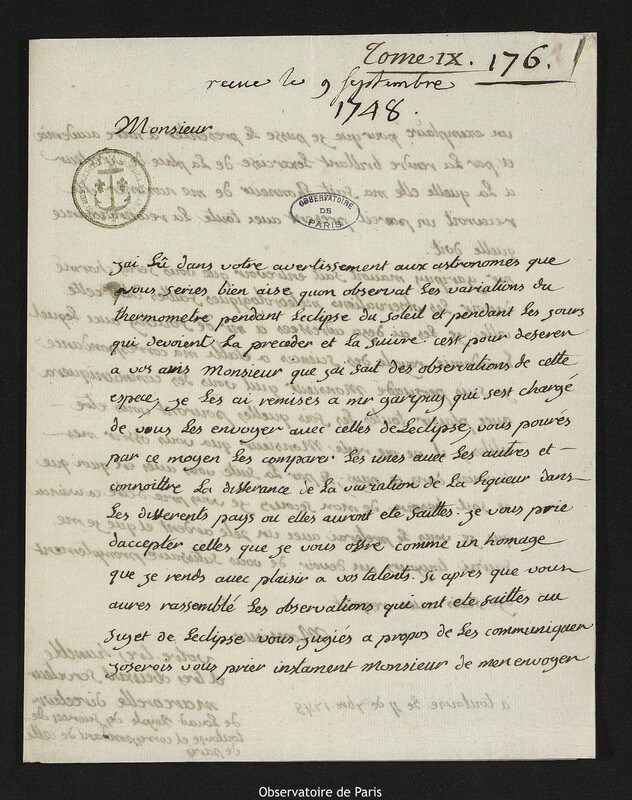 Tome IX. 176.
recue le 9 septembre
1748.
Monsieur
OBSERVATOIRE
DE
PARIS
jai Lû dans votre avertissement aux astronomes que
vous series bien aise quon observat Les variations du
thermometre pendant Leclipse du soleil et pendant Les jours
qui devoient La preceder et La suivre. cest pour deferer
a vos avis Monsieur que jai fait des observations de cette
espece, je Les ai remises a mr garipuy qui sest chargé
de vous Les envoyer avec celles de Leclipse, vous pourés
par ce moyen Les comparer Les unes avec Les autres et
connoittre La differance de La variation de La Liqueur dans
Les differents pays ou elles auront ete faittes. je vous prie
daccepter celles que je vous offre comme un homage
que je rends avec plaisir a vos talents. si apres que vous
aures rassemblé Les observations qui ont ete faittes au
sujet de Leclipse vous jugiés a propos de Les communiquer
joserois vous prier instament Monsieur de men envoyer
Observatoire de Paris